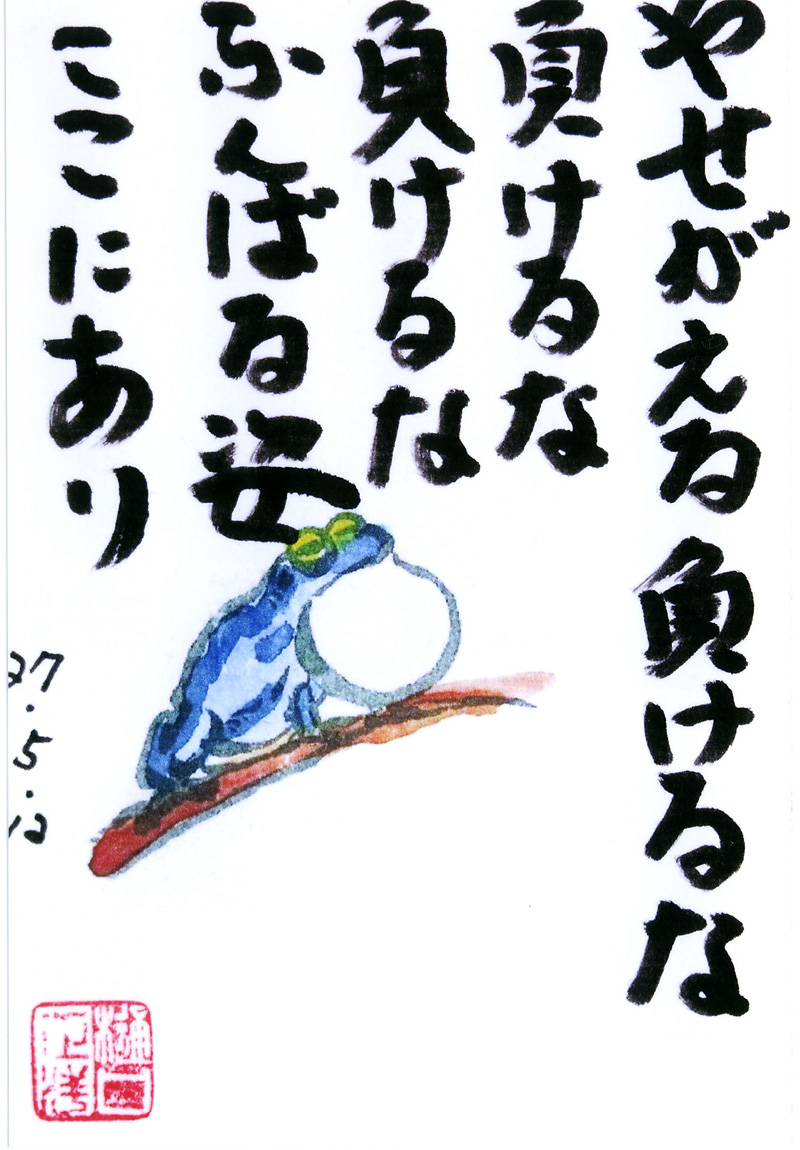 やせがえる 負けるな
負けるな
負けるな
ふんばる姿
ここにあり
27.5.12
樋口